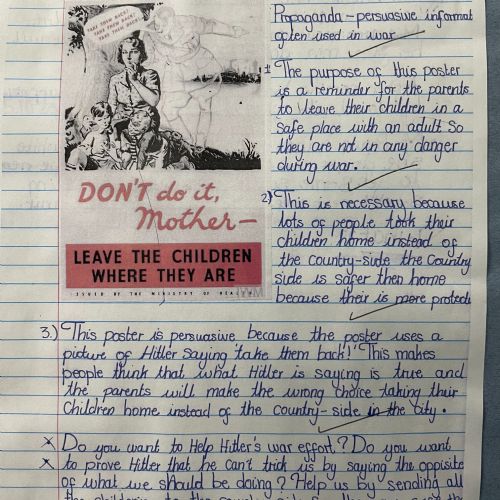 TAKE THEM BACK!
TAKE THEM BACK!
TAKE THEM BACK!
DON'T do it,
Mother—
LEAVE THE CHILDREN
WHERE THEY ARE
ISSUED BY THE MINISTRY OF HEALTH
IWM
Propaganda - persuasive informat
often used in war
1 The purpose of this poster
is a reminder for the parents
to leave their children in a
safe place with an adult so
they are not in any danger
during war.
2) This is necessary because
lots of people took their
children home instead of
the country-side the country
side is safer then home
because their is more protecti
3.) This poster is persuasive because the poster uses a
picture of Hitler saying 'take them back!' This makes
people think that what Hitler is saying is true and
the parents will make the wrong choice taking their
children home instead of the country-side in the city.
Do you want to Help Hitler's war effort? Do you want
to prove Hitler that he can't trick us by saying the opposite
of what we should be doing? Help us by sending all